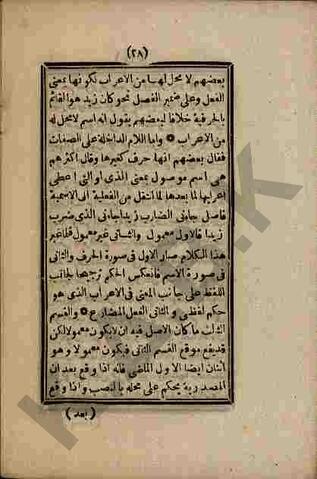 (٢٨)
بعضهم لا محل لها من الاعراب لكونها بمعنى
الفعل وعلى ضمير الفصل نحو كان زيد هو القائم
بالحرفية خلافا لبعضهم بقول انه اسم لا محل له
من الاعراب * واما اللام الداخلة على الصفات
فقال بعضهم انها حرف كغيرها وقال اكثرهم
هى اسم موصول بمعنى الذى او التى اعطى
اعرابها لما بعدها لما انتقل من الفعلية الى الاسمية
فاصل جاءنى الضارب زيدا جاءنى الذى ضرب
زيدا فالاول معمول والثانى غير معمول فلما غير
هذا الكلام صار الاول فى صورة الحرف والثانى
فى صورة الاسم فانعكس الحكم ترجيحا لجانب
اللفظ على جانب المعنى فى الاعراب الذى هو
حكم لفظى * والثانى الفعل المضارع * والقسم
الثالث ما كان الاصل فيه ان لا يكون معمولا لكن
قد يقع موقع القسم الثانى فيكون معمولا وهو
اثنان ايضا الاول الماضى فانه اذا وقع بعد ان
المصدرية يحكم على محله بالنصب واذا وقع
(بعد)